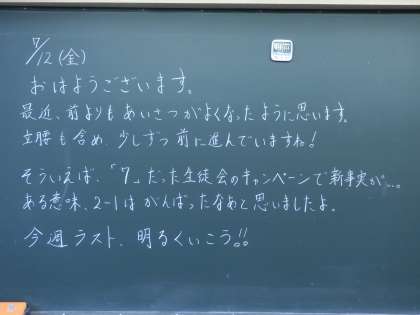 7/12(金)
おはようございます。
最近、前よりもあいさつがよくなったように思います。
立腰も含め、少しずつ前に進んでいますね!
そういえば、「7」だった生徒会のキャンペーンで新事実が…。
ある意味、2-1はがんばったなあと思いましたよ。
今週ラスト、明るくいこう!!